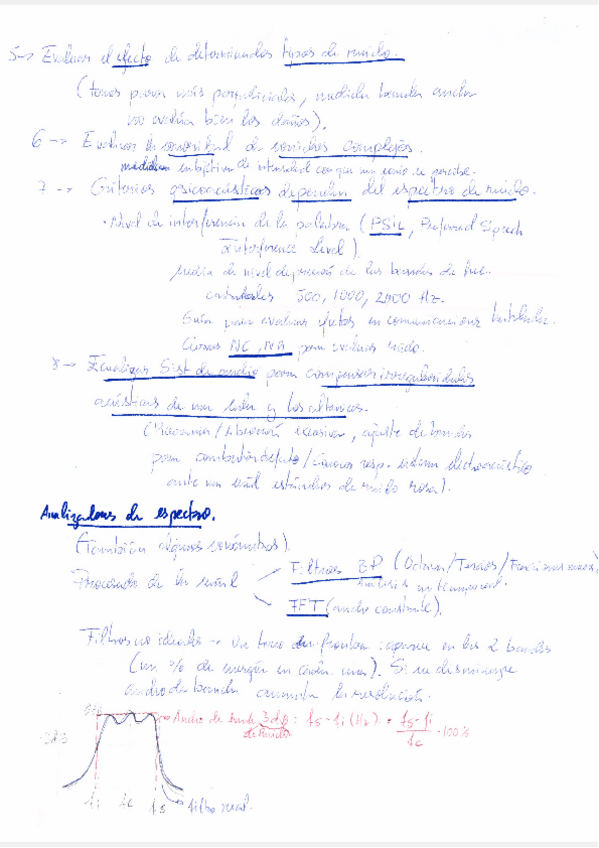 5 → Evaluar el efecto de determinados tipos de ruido.
(tonos puros más perjudiciales, medida banda ancha
no evalúa bien los daños).
6 → Evaluar la sonoridad de sonidos complejos.
medida subjetiva de intensidad con que un sonido se percibe.
7 → Criterios psicoacústicos dependen del espectro de ruido.
· Nivel de interferencia de la palabra (PSIL, Preferred Speech
Interference Level).
Media de nivel de presión de las bandas de frec.
centrales 500, 1000, 2000 Hz.
Guía para evaluar efectos en comunicaciones habladas.
Curvas NC, NR para evaluar ruido.
8 → Ecualizar Sist de audio para compensar irregularidades
acústicas de una sala y los altavoces.
excesiva, ajuste de bandas
para resp. sistema electroacústico
ante una señal estándar de ruido rosa).
Analizadores de espectro.
(También algunos sonómetros).
Procesado de la señal
Filtros BP (Octavas/Tercios/
Análisis en t
FFT (ancho constante).
Filtros no ideales → Un tono en frontera : aparece en las 2 bandas
(un % de energía en cada una). Si se disminuye
ancho de banda aumenta la resolución.
Ancho de banda 3dB : fs - fi (Hz) = fs - fi / fc · 100%
-3dB
fi fc fs filtro real.